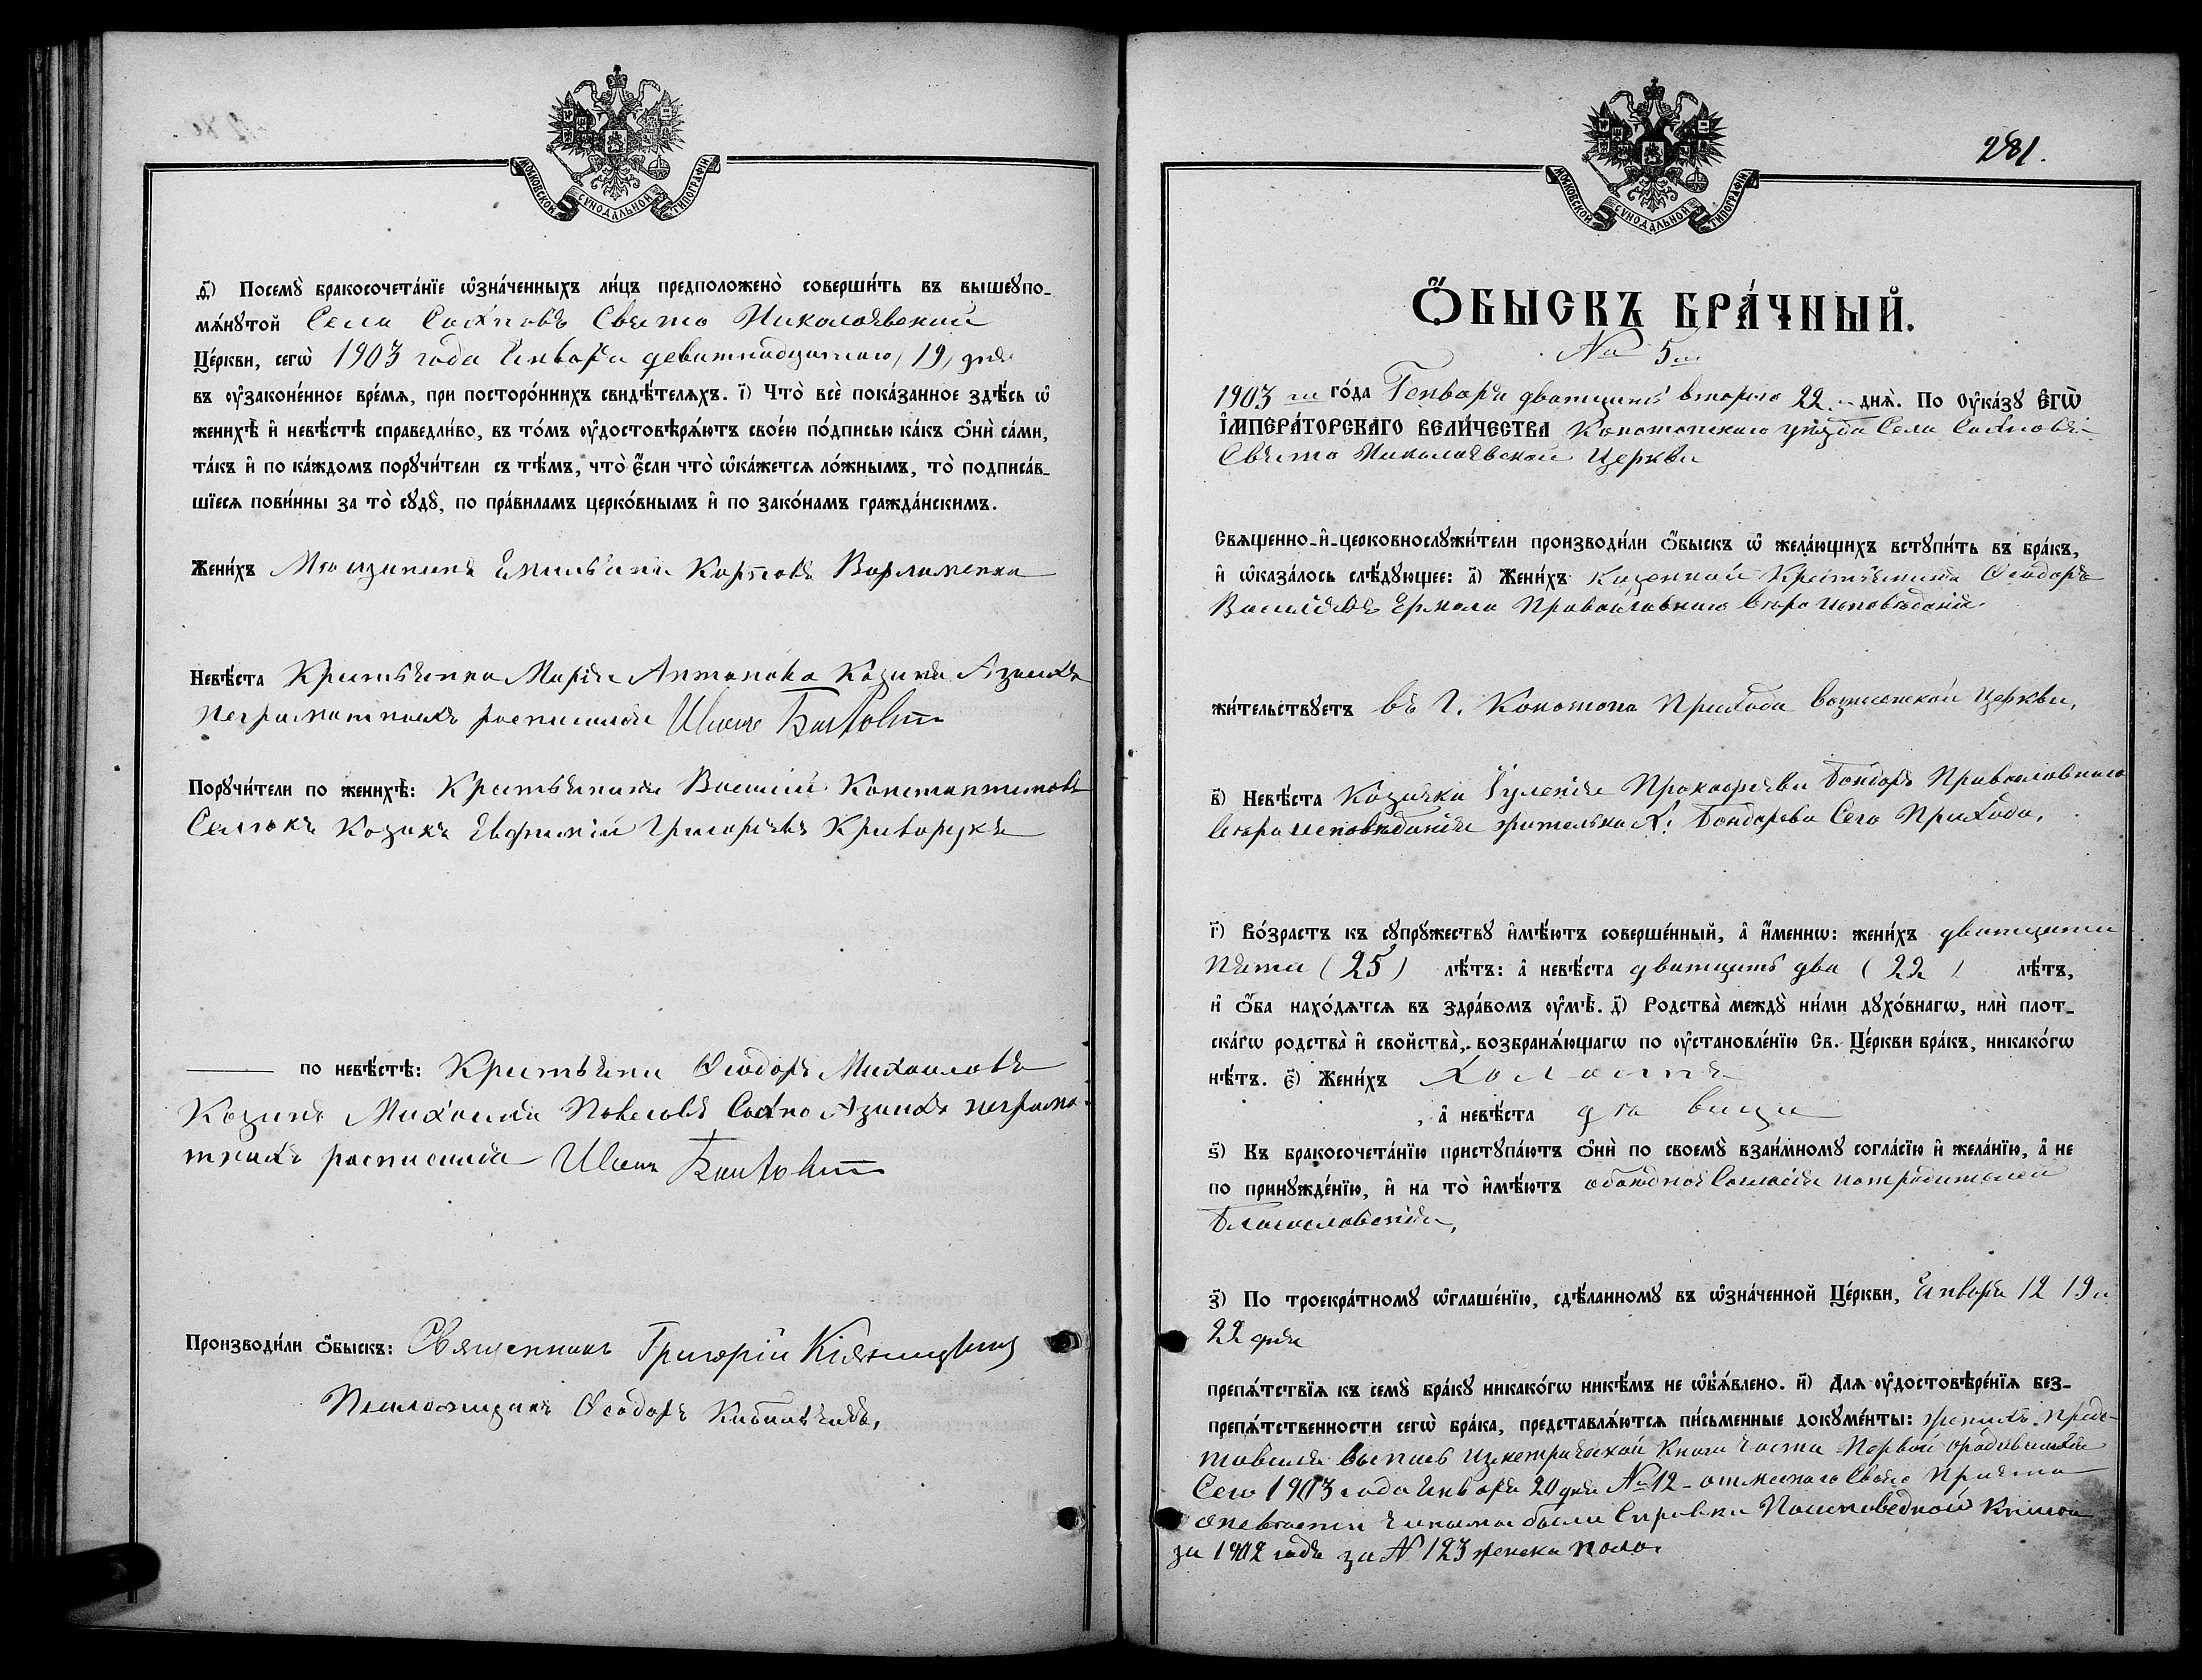 МОСКОВСКОЙ СѴНОДАЛЬНОЙ ТИПОГРАФІИ
ѳ҃) Посемꙋ̀ бракосочета́нїе ѡ҆зна́ченныхъ ли́цъ предположено̀ соверши́ть въ вышеꙋпо-
мѧ́нꙋтой Села Сахновъ Свято Николаевской
Це́ркви, сегѡ̀ 1903 года Января девятнадцатаго (19) дня
въ ᲂу҆законе́нное вре́мѧ, при посторо́ннихъ свидѣ́телѧхъ. і҃) Что̀ всѐ пока́занное здѣ́сь ѡ҆
женихѣ̀ и҆ невѣ́стѣ справедли́во, въ то́мъ ᲂу҆достовѣрѧ́ютъ свое́ю по́дписью ка́къ ѻ҆нѝ са́ми,
та́къ и҆ по ка́ждомъ порꙋчи́тели съ тѣ́мъ, что̀ є҆́сли что̀ ѡ҆ка́жетсѧ ло́жнымъ, то̀ подписа́в-
шїесѧ пови́нны за то̀ сꙋдꙋ̀, по пра́виламъ церко́внымъ и҆ по зако́намъ гражда́нскимъ.
Жени́хъ Мещанинъ Емильянъ Карповъ
Невѣ́ста Крестьянка Марія Антонова
неграмотныхъ росписался Иванъ
Порꙋчи́тели по женихѣ̀: Крестьянинъ Василій Константиновъ
Козакъ Евфимій Григоріевъ Криворукъ
по невѣ́стѣ: Крестьянинъ Ѳеодоръ Михаиловъ
Михаилъ Павловъ Сахно неграмо
тныхъ росписался Иванъ
Производи́ли ѻ҆́быскъ: Священникъ Григорій
Псаломщикъ Ѳеодоръ
281.
МОСКОВСКОЙ СѴНОДАЛЬНОЙ ТИПОГРАФІИ
Ѻ҆́БЫСКЪ БРА́ЧНЫЙ.
№ 5
1903 го́да Генваря двадцать второго 22 днѧ̀. По Оу҆ка́зꙋ Є҆ГѠ̀
І҆МПЕРА́ТОРСКАГО ВЕЛИ́ЧЕСТВА Конотопскаго уѣзда Села Сахновъ
Свято Николаевской Церкви
Свѧщенно-и҆-церковнослꙋжи́тели производи́ли ѻ҆́быскъ ѡ҆ жела́ющихъ встꙋпи́ть въ бра́къ,
и҆ ѡ҆каза́лось слѣ́дꙋющее: а҃) Жени́хъ казенный Крестьянинъ Ѳеодоръ
Васильевъ Ермола Православнаго вѣроисповѣданія
жи́тельствꙋетъ въ г. Конотопа Прихода Вознесенской Церкви,
в҃) Невѣ́ста Козачка Іуленія Прокофіева Бондарь Православнаго
вѣроисповѣданія жителька х. Бондарева Сего Прихода,
г҃) Во́зрастъ къ сꙋпрꙋ́жествꙋ и҆мѣ́ютъ соверше́нный, а҆ и҆́менно: жени́хъ двадцати
пяти (25) лѣ́тъ: а҆ невѣ́ста двадцать два (22) лѣ́тъ,
и҆ ѻ҆́ба нахо́дѧтсѧ въ здра́вомъ ᲂу҆мѣ̀. д҃) Родства̀ междꙋ̀ ни́ми дꙋхо́внагѡ, илѝ плот-
ска́гѡ родства̀ и҆ сво́йства, возбранѧ́ющагѡ по ᲂу҆становле́нїю Св. Це́ркви бра́къ, никако́гѡ
нѣ́тъ. є҃) Жени́хъ холостъ
, а҆ невѣ́ста дѣвица
ѕ҃) Къ бракосочета́нїю пристꙋпа́ютъ ѻ҆нѝ по своемꙋ̀ взаи́мномꙋ согла́сїю и҆ жела́нїю, а҆ не
по принꙋжде́нїю, и҆ на то̀ и҆мѣ́ютъ обоюдное Согласіе родителей
благословенія,
з҃) По троекра́тномꙋ ѡ҆глаше́нїю, сдѣ́ланномꙋ въ ѡ҆зна́ченной Це́ркви, Января 12 19 и
22 дня
препѧ́тствїѧ къ семꙋ̀ бра́кꙋ никако́гѡ никѣ́мъ не ѡ҆б̾ѧ́влено. и҃) Длѧ ᲂу҆достовѣре́нїѧ без-
препѧ́тственности сегѡ̀ бра́ка, представлѧ́ютсѧ пи́сьменные докꙋме́нты: женихъ предс-
тавилъ выпись изъ метрической книги части первой о родившихся
Сего 1903 года Января 20 дня № 12
были справки исповедной Книги
за 1902 годъ за № 123 женска пола.